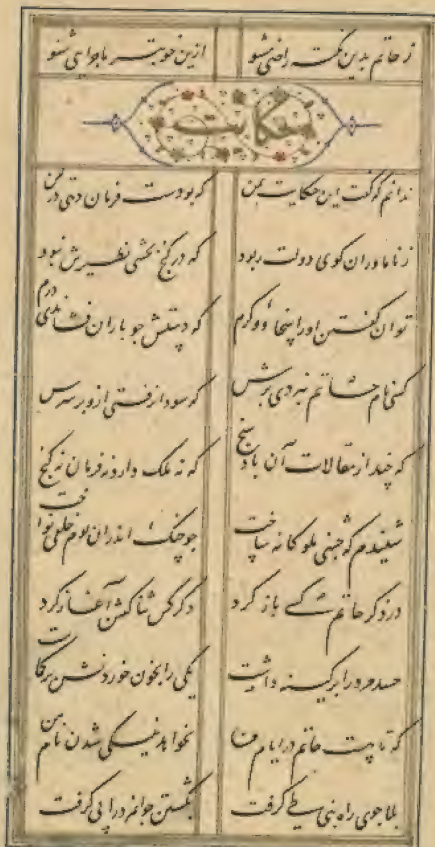 ز حاتم بدین نکته راضی مشو ازین خوبتر ماجرایی شنو
حکایت
ندانم که گفت این حکایت بمن که بودست فرمان دهی در یمن
ز نام اوران کوی دولت ربود که در کنج بخشی نظیرش نبود
توان کفتن اورا سخا و کرم که دستش چو باران فشاندی درم
کسی نام حاتم نبردی برش که سودا نرفتی ازو بر سرش
که چند از مقالات آن باد سنج که نه ملک دارد نه فرمان نه کنج
شنیدم که جشنی ملوکانه ساخت چو چنک اندران بزم خلقی نواخت
در ذکر حاتم کسی باز کرد دکر کس ثنا کفتن آغاز کرد
حسد مرد را بر کینه داشت یکی را بخون خوردنش بر کماشت
که تا هست حاتم در ایام من نخواهد بنیکی شدن نام من
بلا جوی راه بنی طی کرفت بکشتن جوانمرد را پی کرفت